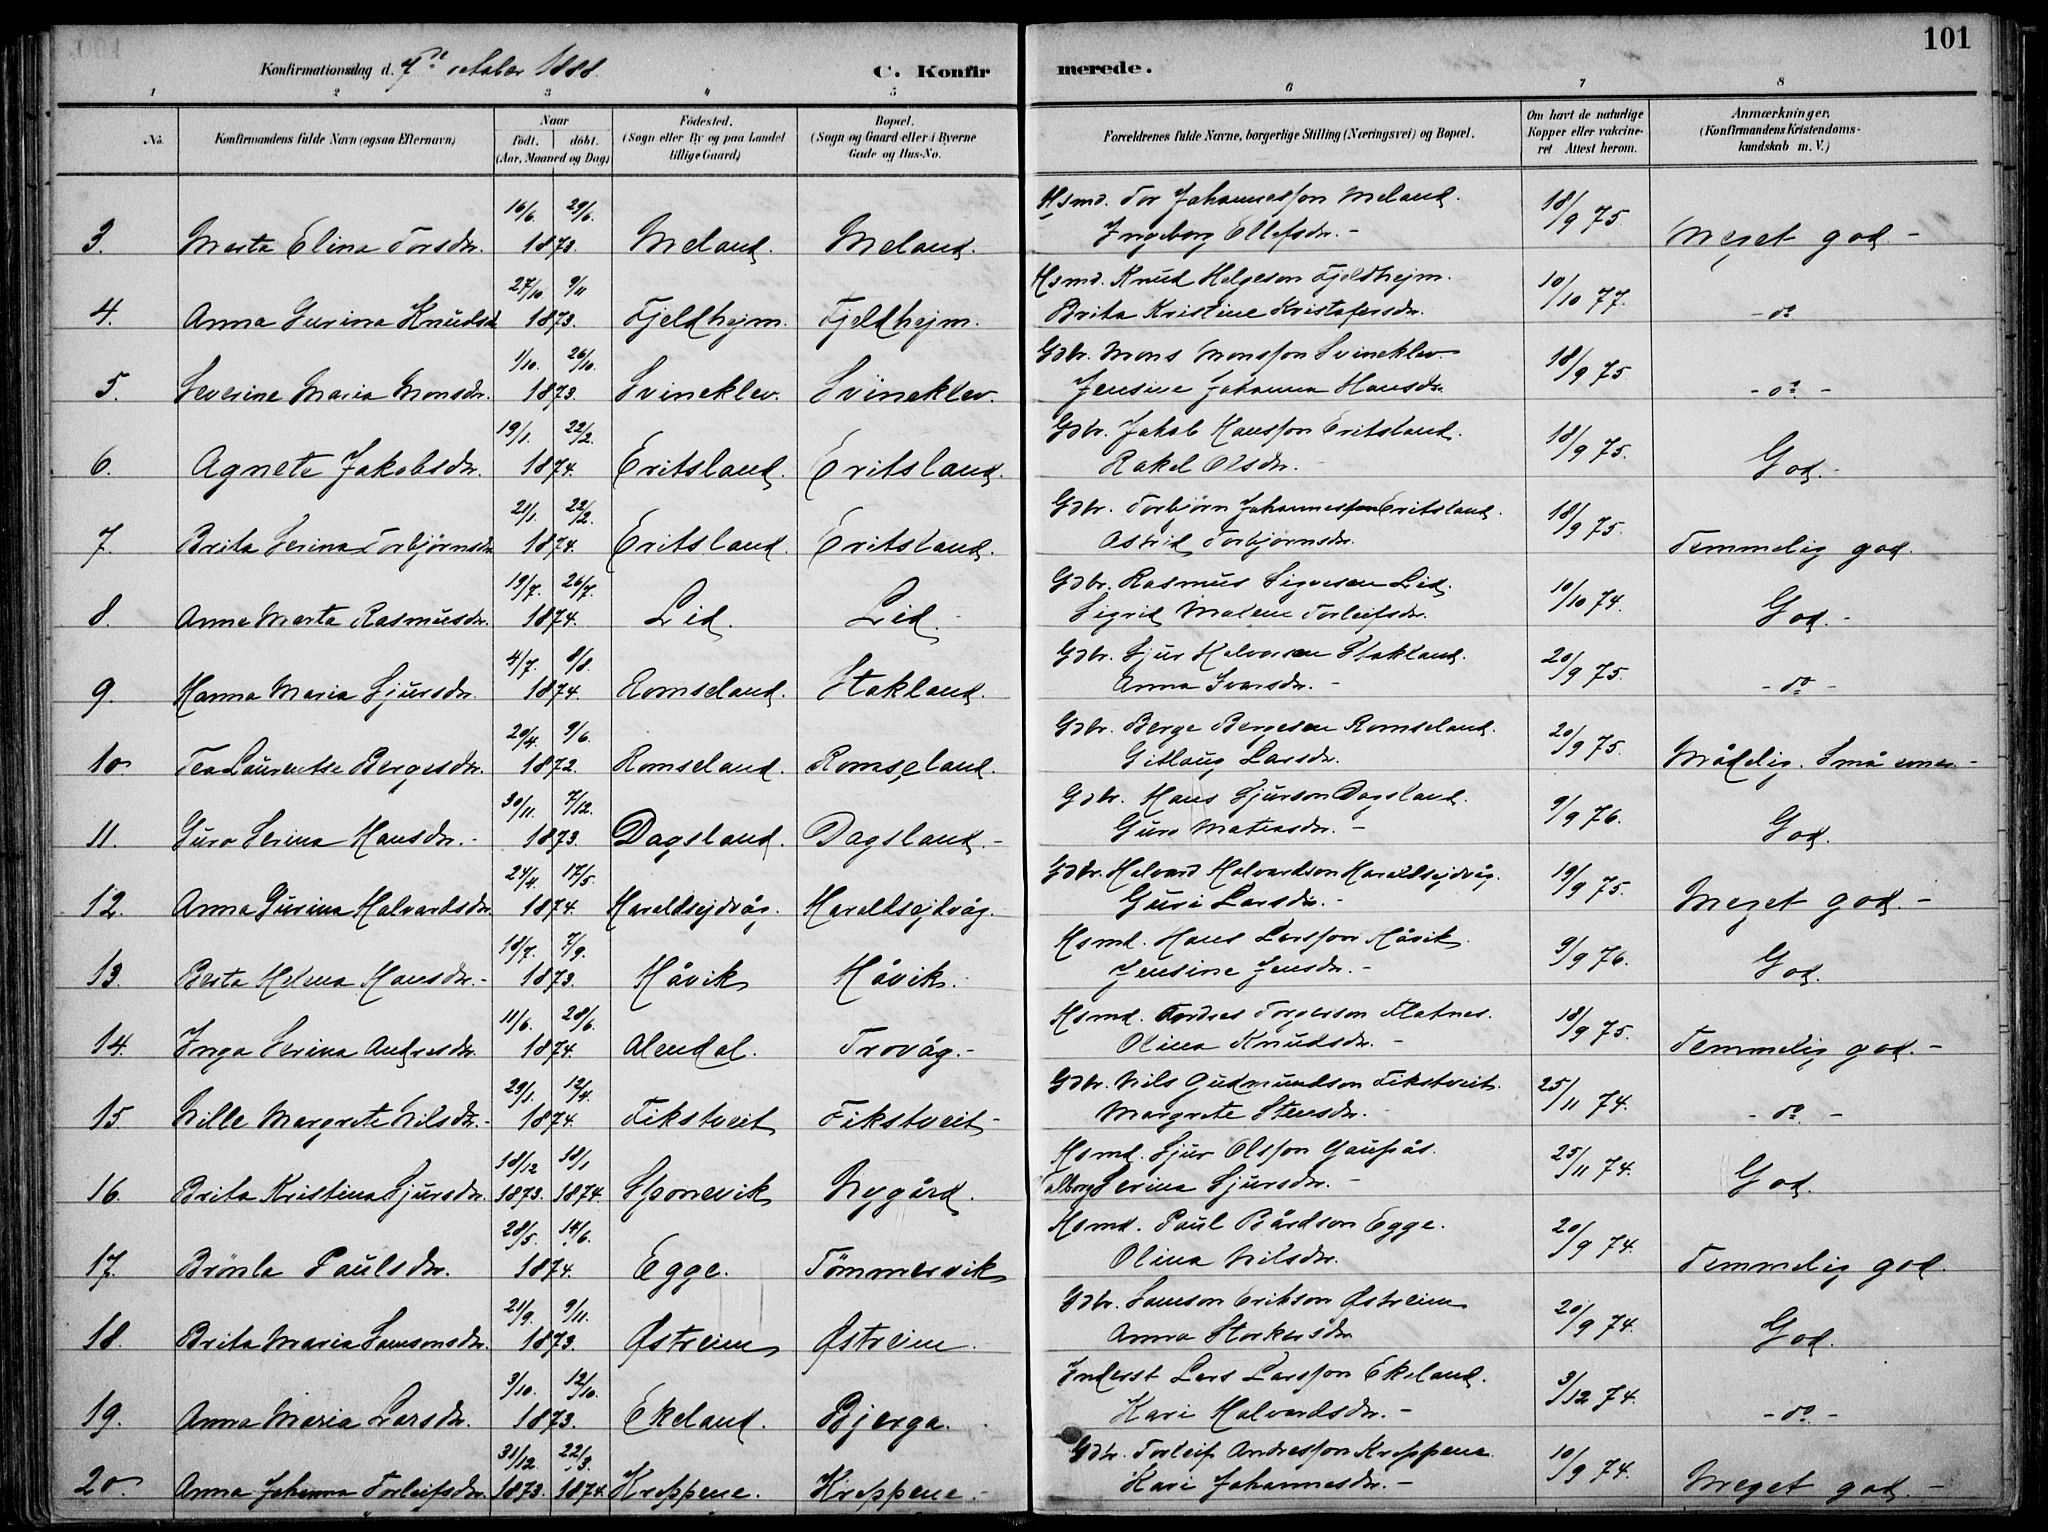 101
Konfirmationsdag d. 7de october 1888.
C. Konfirmerede.
1 2 3 4 5 6 7 8
No.
Konfirmandens fulde Navn (ogsaa Efternavn)
Naar
født. døbt.
(Aar, Maaned og Dag)
Fødested.
(Sogn eller By og paa Landet
tillige Gaard)
Bopæl.
(Sogn og Gaard eller i Byerne
Gade og Hus-No.
Forældrenes fulde Navne, borgerlige Stilling (Næringsvei) og Bopæl.
Om havt de naturlige
Kopper eller vakcine-
ret Attest herom.
Anmærkninger.
(Konfirmandens Kristendoms-
kundskab m. V.)
16/6. 29/6. Hsmd. Tor Johannesson Meland. 18/9 75.
3. Marta Elina Torsdr. 1873. Meland. Meland. Ingeborg Ellefsdr. - Meget god -
27/10. 9/11 Hsmd. Knud Helgeson Fjeldhejm. 10/10 77.
4. Anna Gurina Knudsd 1873. Fjeldhejm. Fjeldhejm. Brita Kristine Kristofersdr. - do
1/10. 26/10. Gdbr. Mons Monsson Svineklev. 18/9 75
5. Severine Maria Monsdr. 1873. Svineklev. Svineklev. Jensine Johanna Hansdr. - do -
19/1. 22/2. Gdbr. Jakob Hansson Eritsland. 18/9 75.
6. Agnete Jakobsdr. 1874. Eritsland. Eritsland. Rakel Olsdr. - God. -
21/1. 22/2. Gdbr. Torbjörn Johannesson Eritsland. 18/9 75.
7. Brita Serina Torbjørnsdr 1874. Eritsland. Eritsland. Astrid Torbjørnsdr. Temmelig god.
19/7. 26/7. Gdbr. Rasmus Sigvesen Lid. 10/10 74.
8. Anne Marta Rasmusdr. 1874. Lid. Lid. Sigrid Malene Torleifsdr. God. -
4/7. 8/8. Gdbr. Sjur Halvorsen Stakland. 20/9 75.
9. Hanna Maria Sjursdr. 1874. Romseland. Stakland. Anna Ivarsdr. - - do -
20/4. 9/6. Gdbr. Berge Bergesen Romseland. 20/9 75.
10. Tea Laurentse Bergesdr. 1872. Romseland. Romseland. Gitlaug Larsdr. Mådelig. Små evner -
30/11. 7/12. Gdbr. Hans Sjurson Dagsland. 9/9 76.
11. Guro Serina Hansdr. - 1873. Dagsland. Dagsland. - Guro Matiasdr. - God.
24/4. 17/5. Gdbr. Halvard Halvardson Haraldsejdvåg. 19/9 75.
12. Anna Gurina Halvardsdr. 1874. Haraldsejdvåg. Haraldsejdvåg. Guri Larsdr. - Meget god. -
18/7. 7/9. Hsmd. Hans Larsson Håvik. 9/9 76.
13. Berta Helena Hansdr. - 1873. Håvik Håvik. Jensine Jensdr. - God.
11/6. 28/6. Hsmd. Andres Torgerson Flatnes. 18/9 75.
14. Inga Serina Andresdr. 1874. Alendal. Trovåg. - Olina Knudsdr. - Temmelig god. -
29/1. 12/4. Gdbr. Nils Gudmundson Fikstveit. 25/11 74.
15 Nille Margrete Nilsdr. - 1874. Fikstveit Fikstveit - Margrete Stensdr. - - do -
18/12 18/1 Hsmd. Sjur Olsson Gaupås. 25/11 74.
16. Brita Kristina Sjursdr. 1873. 1874. Skonevik Nygård. Valborg Serina Sjursdr. - God.
28/5. 14/6. Hsmd. Paul Bårdson Egge. 20/9 74.
17. Brönla Paulsdr. 1874. Egge. Tömmervik Olina Nilsdr. Temmelig god.
21/9. 9/11. Gdbr. Samson Erikson Østreim 20/9 74.
18. Brita Maria Samsonsdr. 1873. Østreim Østreim. Anna Storkersdr. God.
3/10. 12/10. Inderst Lars Larsson Ekeland. 3/12 74.
19. Anna Maria Larsdr. 1873. Ekeland. Bjerga. Kari Halvardsdr. - - do -
31/12. 22/3. Gdbr. Torleif Andresson Kreppene. 10/9 74.
20. Anna Johanna Torleifsdr. 1873. 1874. Kreppene. Kreppene. - Kari Johannesdr. - Meget god. -